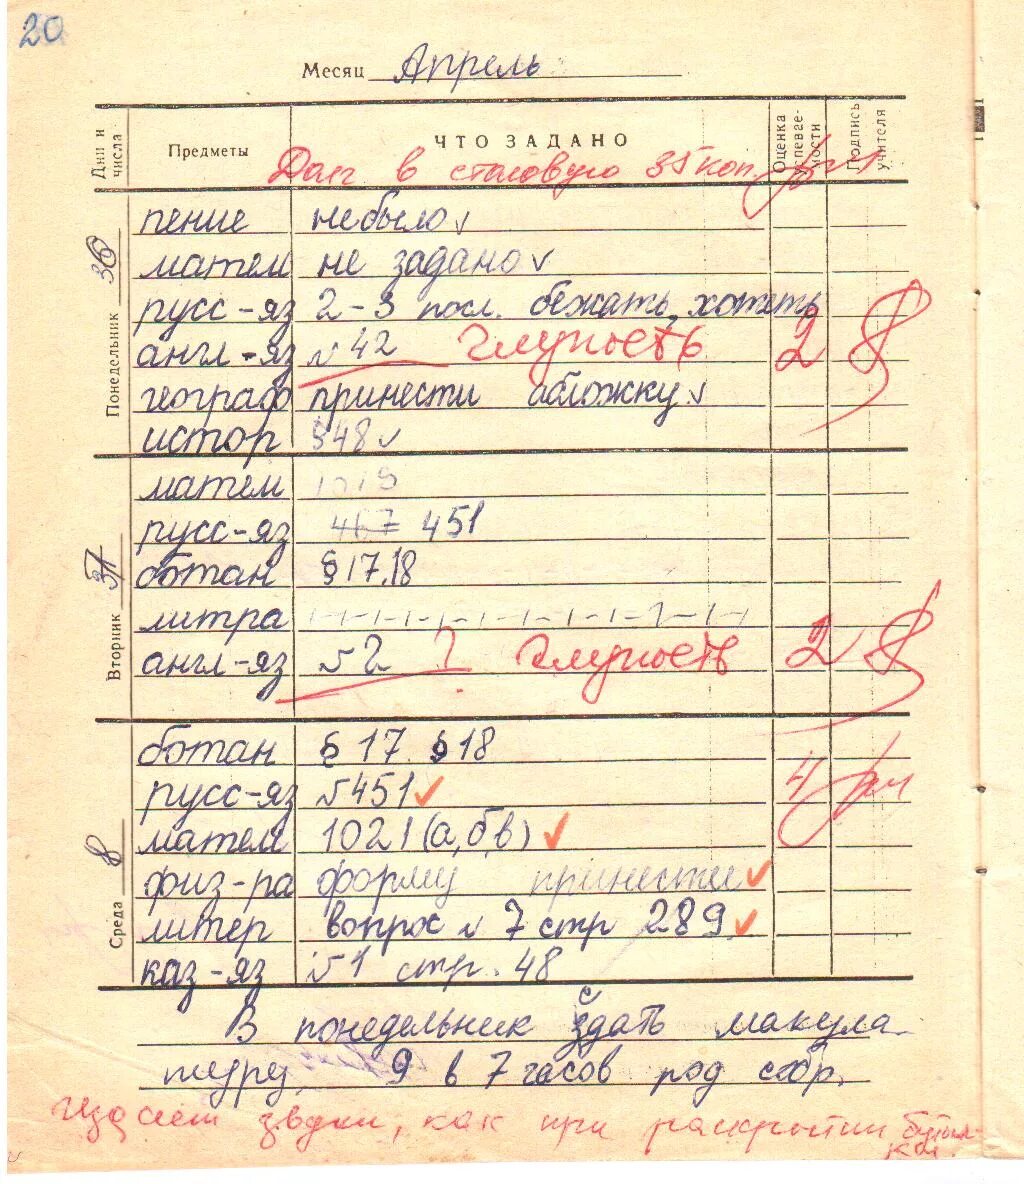 20
Месяц Апрель
Дни и числа Предметы ЧТО ЗАДАНО Оценка успевае-мости Подпись учителя
Долг в столовую 35 коп.
Понедельник
пение небыло
матем не задано
русс-яз 2-3 посл. бежать, хотеть
англ-яз №42 Глупость 2
географ принести абложку
истор §48
Вторник
матем 1019
русс-яз 467 451
ботан §17.18
литра
англ-яз №2 ? Глупость 2
Среда 8
ботан §17. §18 4
русс-яз №451
матем 1021(а,б,в)
физ-ра форму принести
литер вопрос № 7 стр 289
каз-яз №1 стр. 48
В понедельник сдать макула-
туру. 9 в 7 часов род собр.
Издает звуки, как при раскрытии бутыл-
ки.